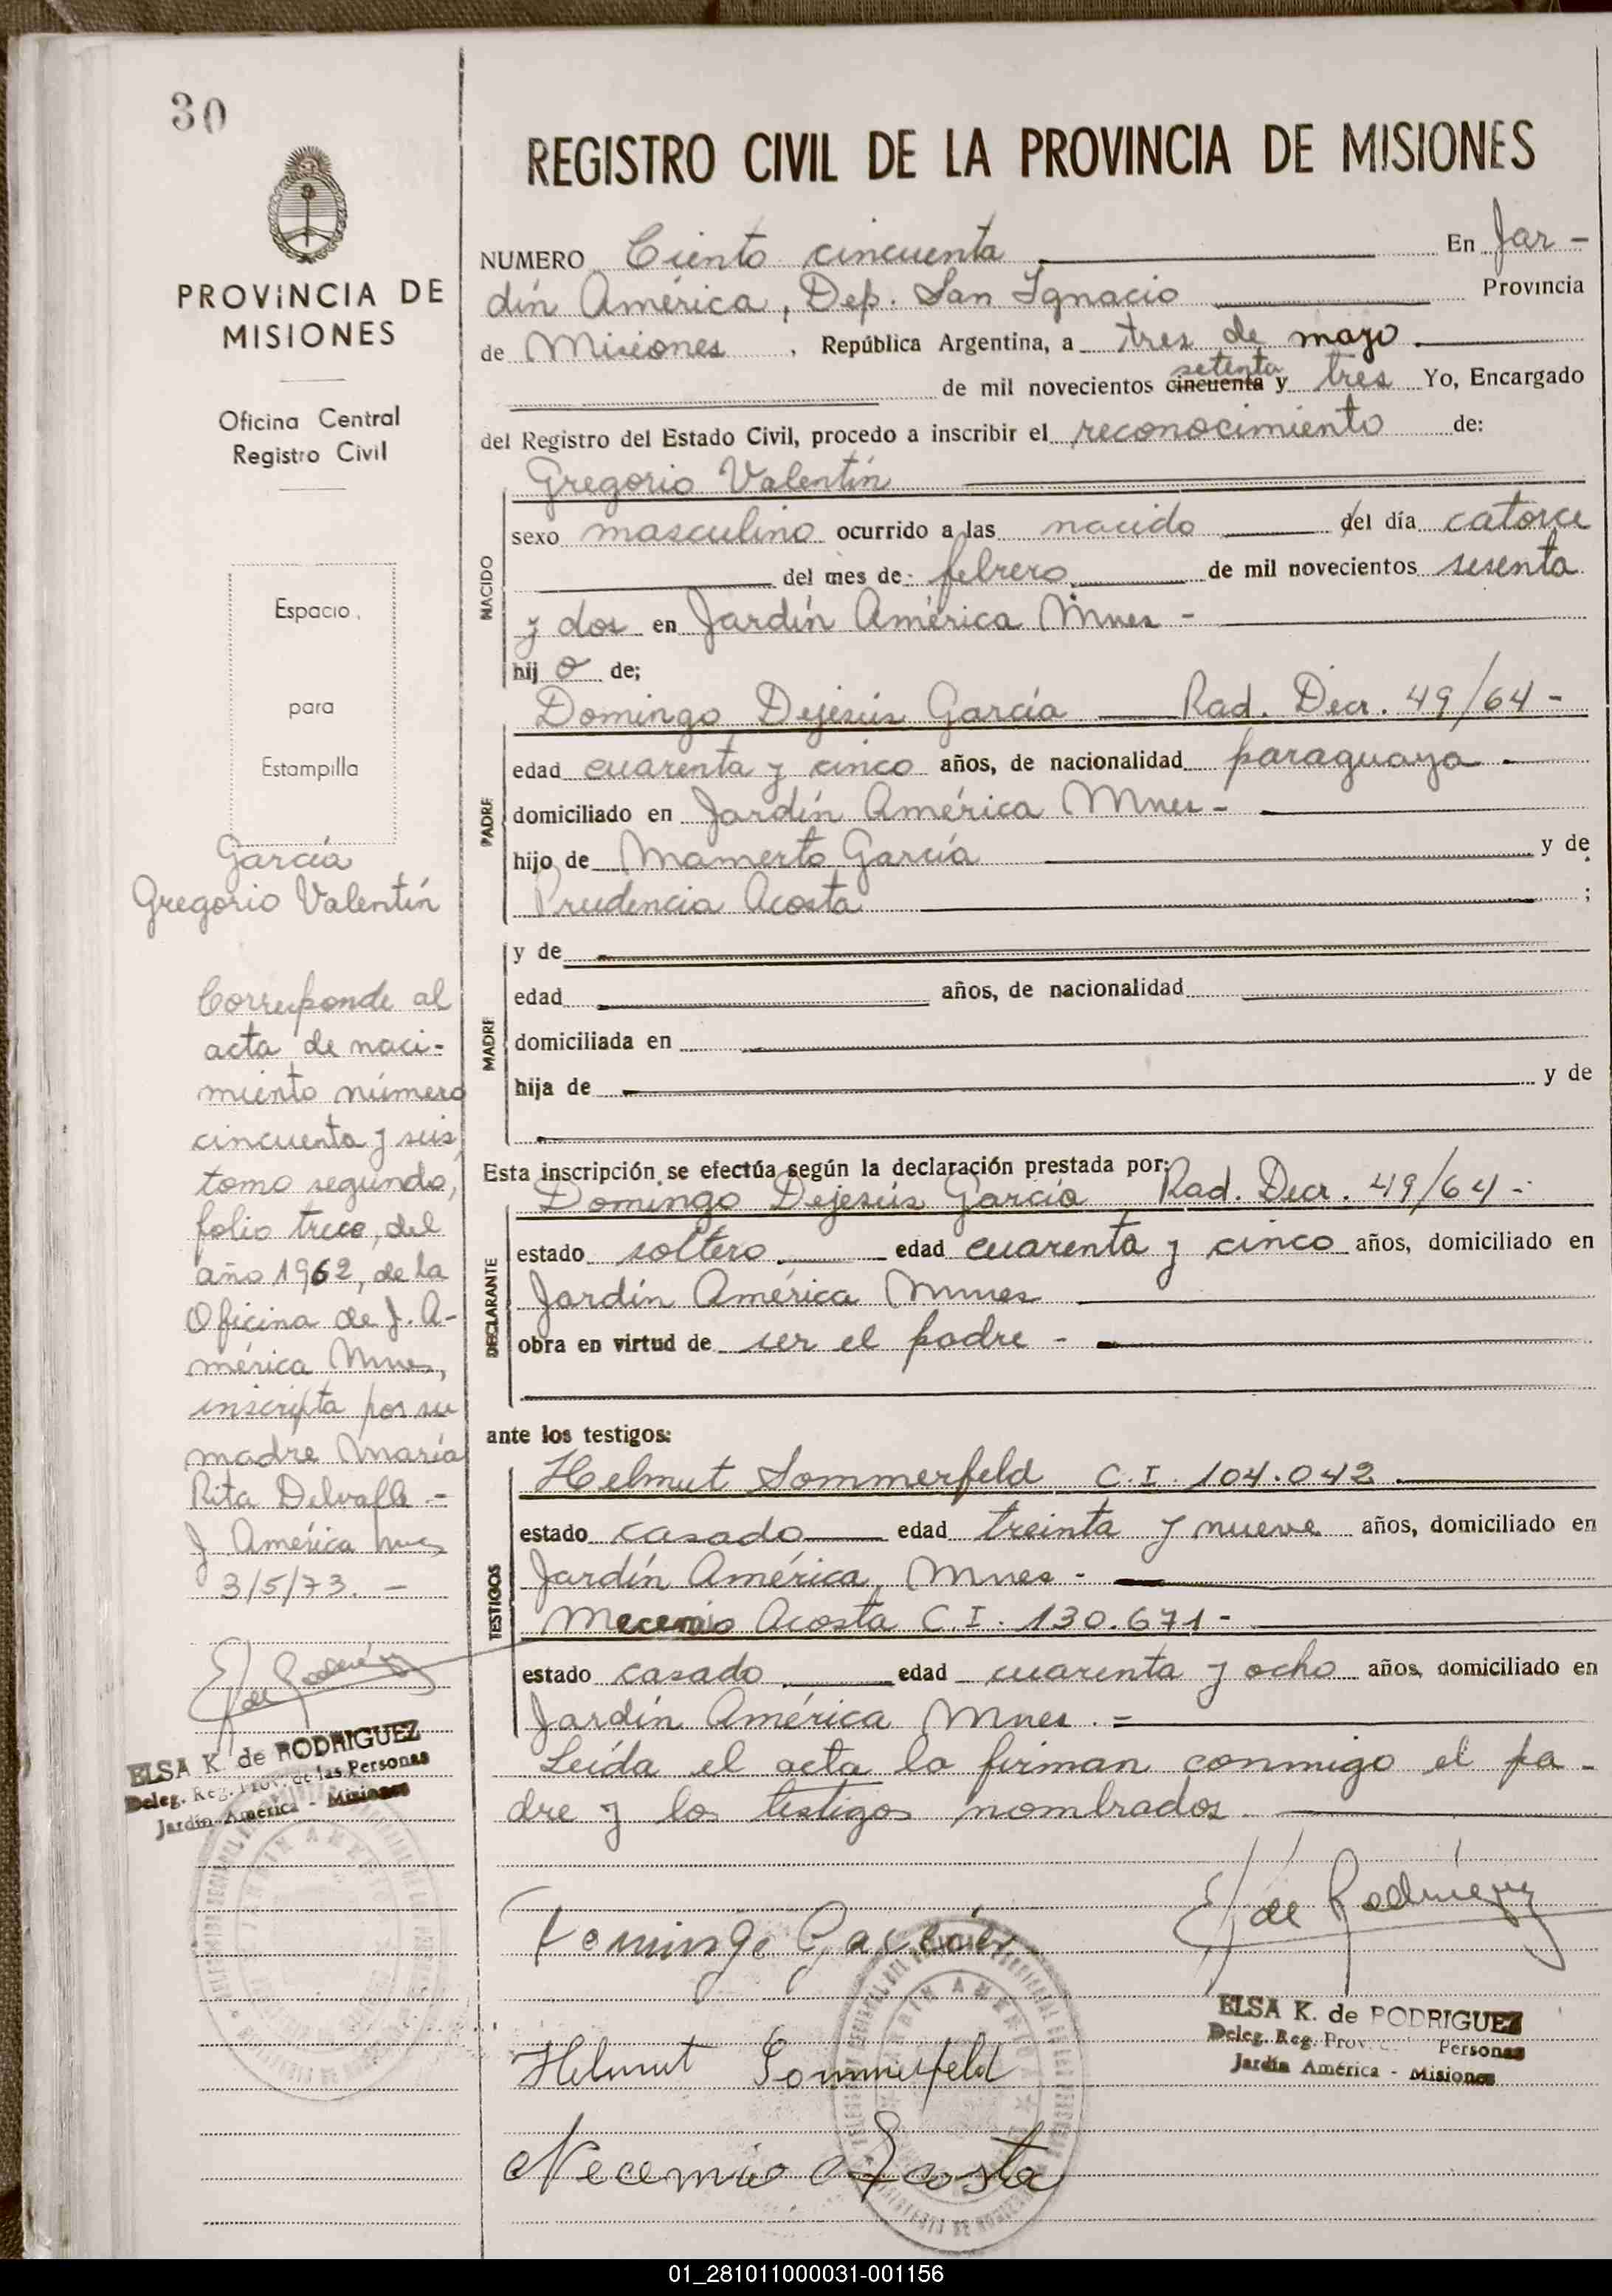 30
PROVINCIA DE
MISIONES
Oficina Central
Registro Civil
Espacio
para
Estampilla
García
Gregorio Valentín
Corresponde al
acta de naci-
miento número
cincuenta y seis,
tomo segundo,
folio trece, del
año 1962, de la
Oficina de J. A-
mérica Mnes,
inscripta por su
madre María
Rita Delvalle -
J. América Mnes
3/5/73. -
E de Rodríguez
ELSA K. de RODRIGUEZ
Deleg. Reg. Prov. de las Personas
Jardín América - Misiones
REGISTRO CIVIL DE LA PROVINCIA DE MISIONES
NUMERO Ciento cincuenta En Jar-
dín América, Dep. San Ignacio Provincia
de Misiones, República Argentina, a tres de mayo
setenta
de mil novecientos cincuenta y tres Yo, Encargado
del Registro del Estado Civil, procedo a inscribir el reconocimiento de:
Gregorio Valentín
NACIDO
sexo masculino ocurrido a las nacido del día catorce
del mes de febrero de mil novecientos sesenta
y dos en Jardín América Mnes -
hijo de;
Domingo Dejesús García Rad. Decr. 49/64 -
PADRE
edad cuarenta y cinco años, de nacionalidad paraguaya
domiciliado en Jardín América Mnes -
hijo de Mamerto García y de
Prudencia Acosta ;
MADRE
y de
edad años, de nacionalidad
domiciliada en
hija de y de
Esta inscripción se efectúa según la declaración prestada por:
Domingo Dejesús García Rad. Decr. 49/64 -
DECLARANTE
estado soltero edad cuarenta y cinco años, domiciliado en
Jardín América Mnes
obra en virtud de ser el padre -
ante los testigos:
Helmut Sommerfeld C.I. 104.042
TESTIGOS
estado casado edad treinta y nueve años, domiciliado en
Jardín América, Mnes -
Acosta C.I. 130.671 -
estado casado edad cuarenta y ocho años, domiciliado en
Jardín América Mnes. -
Leída el acta la firman conmigo el pa-
dre y los testigos nombrados.
Domingo García
E de Rodríguez
ELSA K. de RODRIGUEZ
Deleg. Reg. Prov. Personas
Jardín América - Misiones
Helmut Sommerfeld
Necemio Acosta
01_281011000031-001156